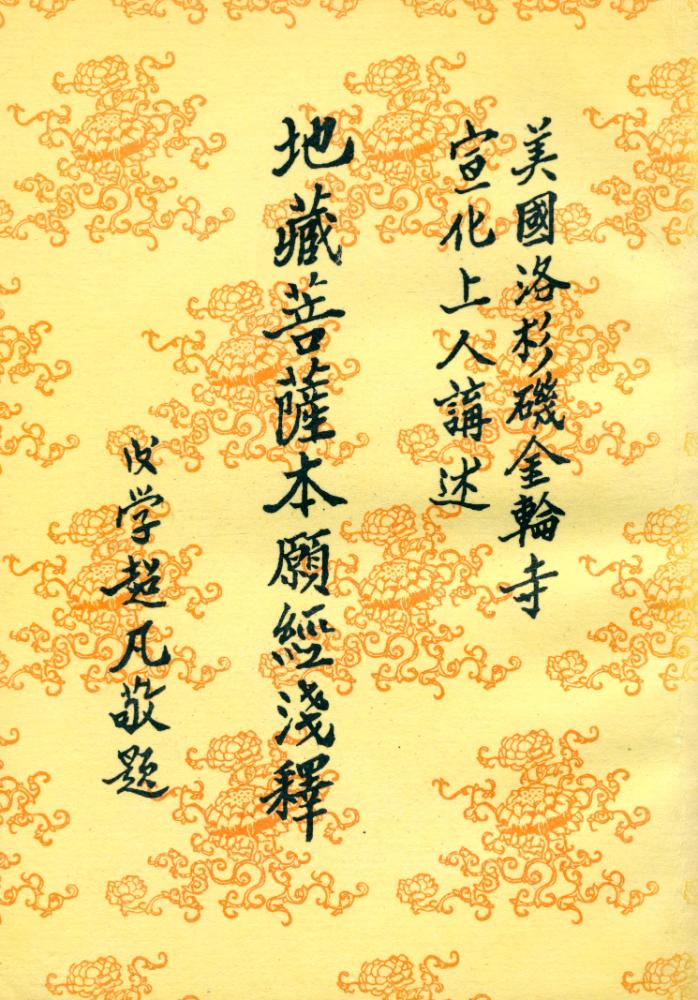 美國洛杉磯金輪寺
宣化上人講述
地藏菩薩本願經淺釋
後学超凡敬題